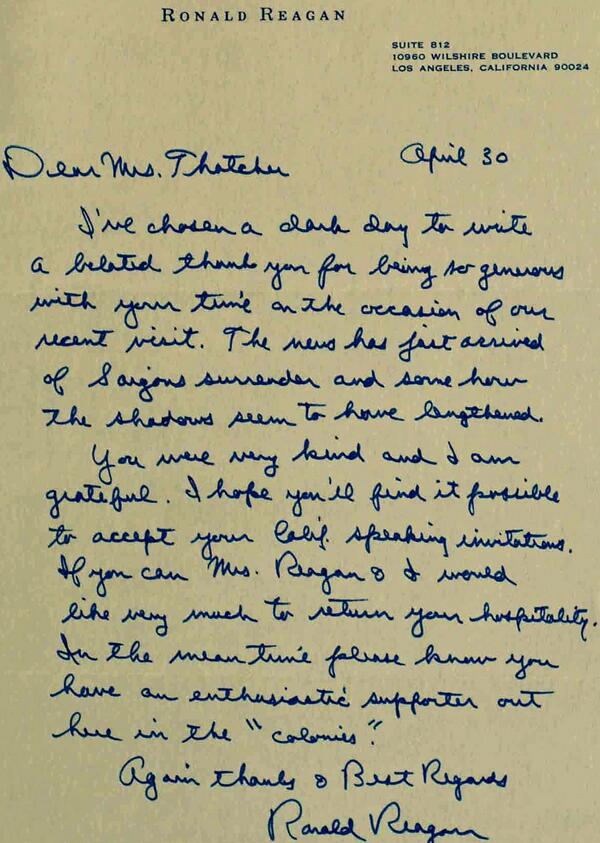 RONALD REAGAN
SUITE 812
10960 WILSHIRE BOULEVARD
LOS ANGELES, CALIFORNIA 90024
April 30
Dear Mrs. Thatcher
I've chosen a dark day to write
a belated thank you for being so generous
with your time on the occasion of our
recent visit. The news has just arrived
of Saigons surrender and some how
the shadows seem to have lengthened.
You were very kind and I am
grateful. I hope you'll find it possible
to accept your Calif. speaking invitations.
If you can Mrs. Reagan & I would
like very much to return your hospitality.
In the mean time please know you
have an enthusiastic supporter out
here in the "colonies".
Again thanks & Best Regards
Ronald Reagan